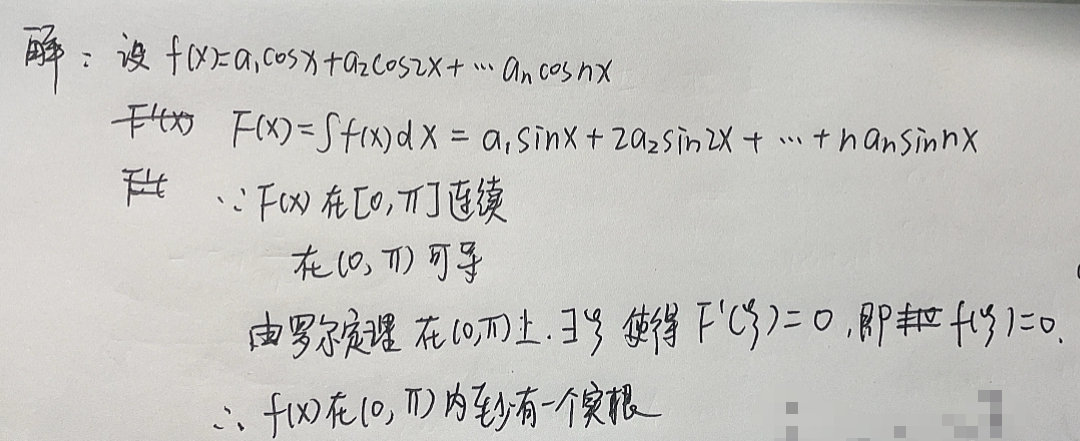 解：设 f(x)=a₁cosx+a₂cos2x+…aₙcosnx
F'(x) F(x)=∫f(x)dx=a₁sinx+2a₂sin2x+…+naₙsinnx
∵F(x)在[0,π]连续
在(0,π)可导
由罗尔定理 在(0,π)上.∃ξ 使得F'(ξ)=0,即 f(ξ)=0.
∴ f(x)在(0,π)内至少有一个实根